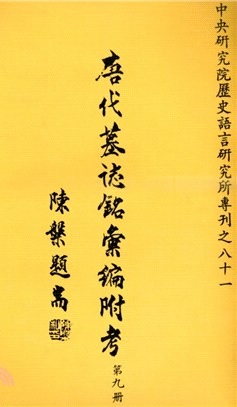 中央研究院歷史語言研究所專刊之八十一
唐代墓誌銘彙編附考
第九册
陳槃題耑